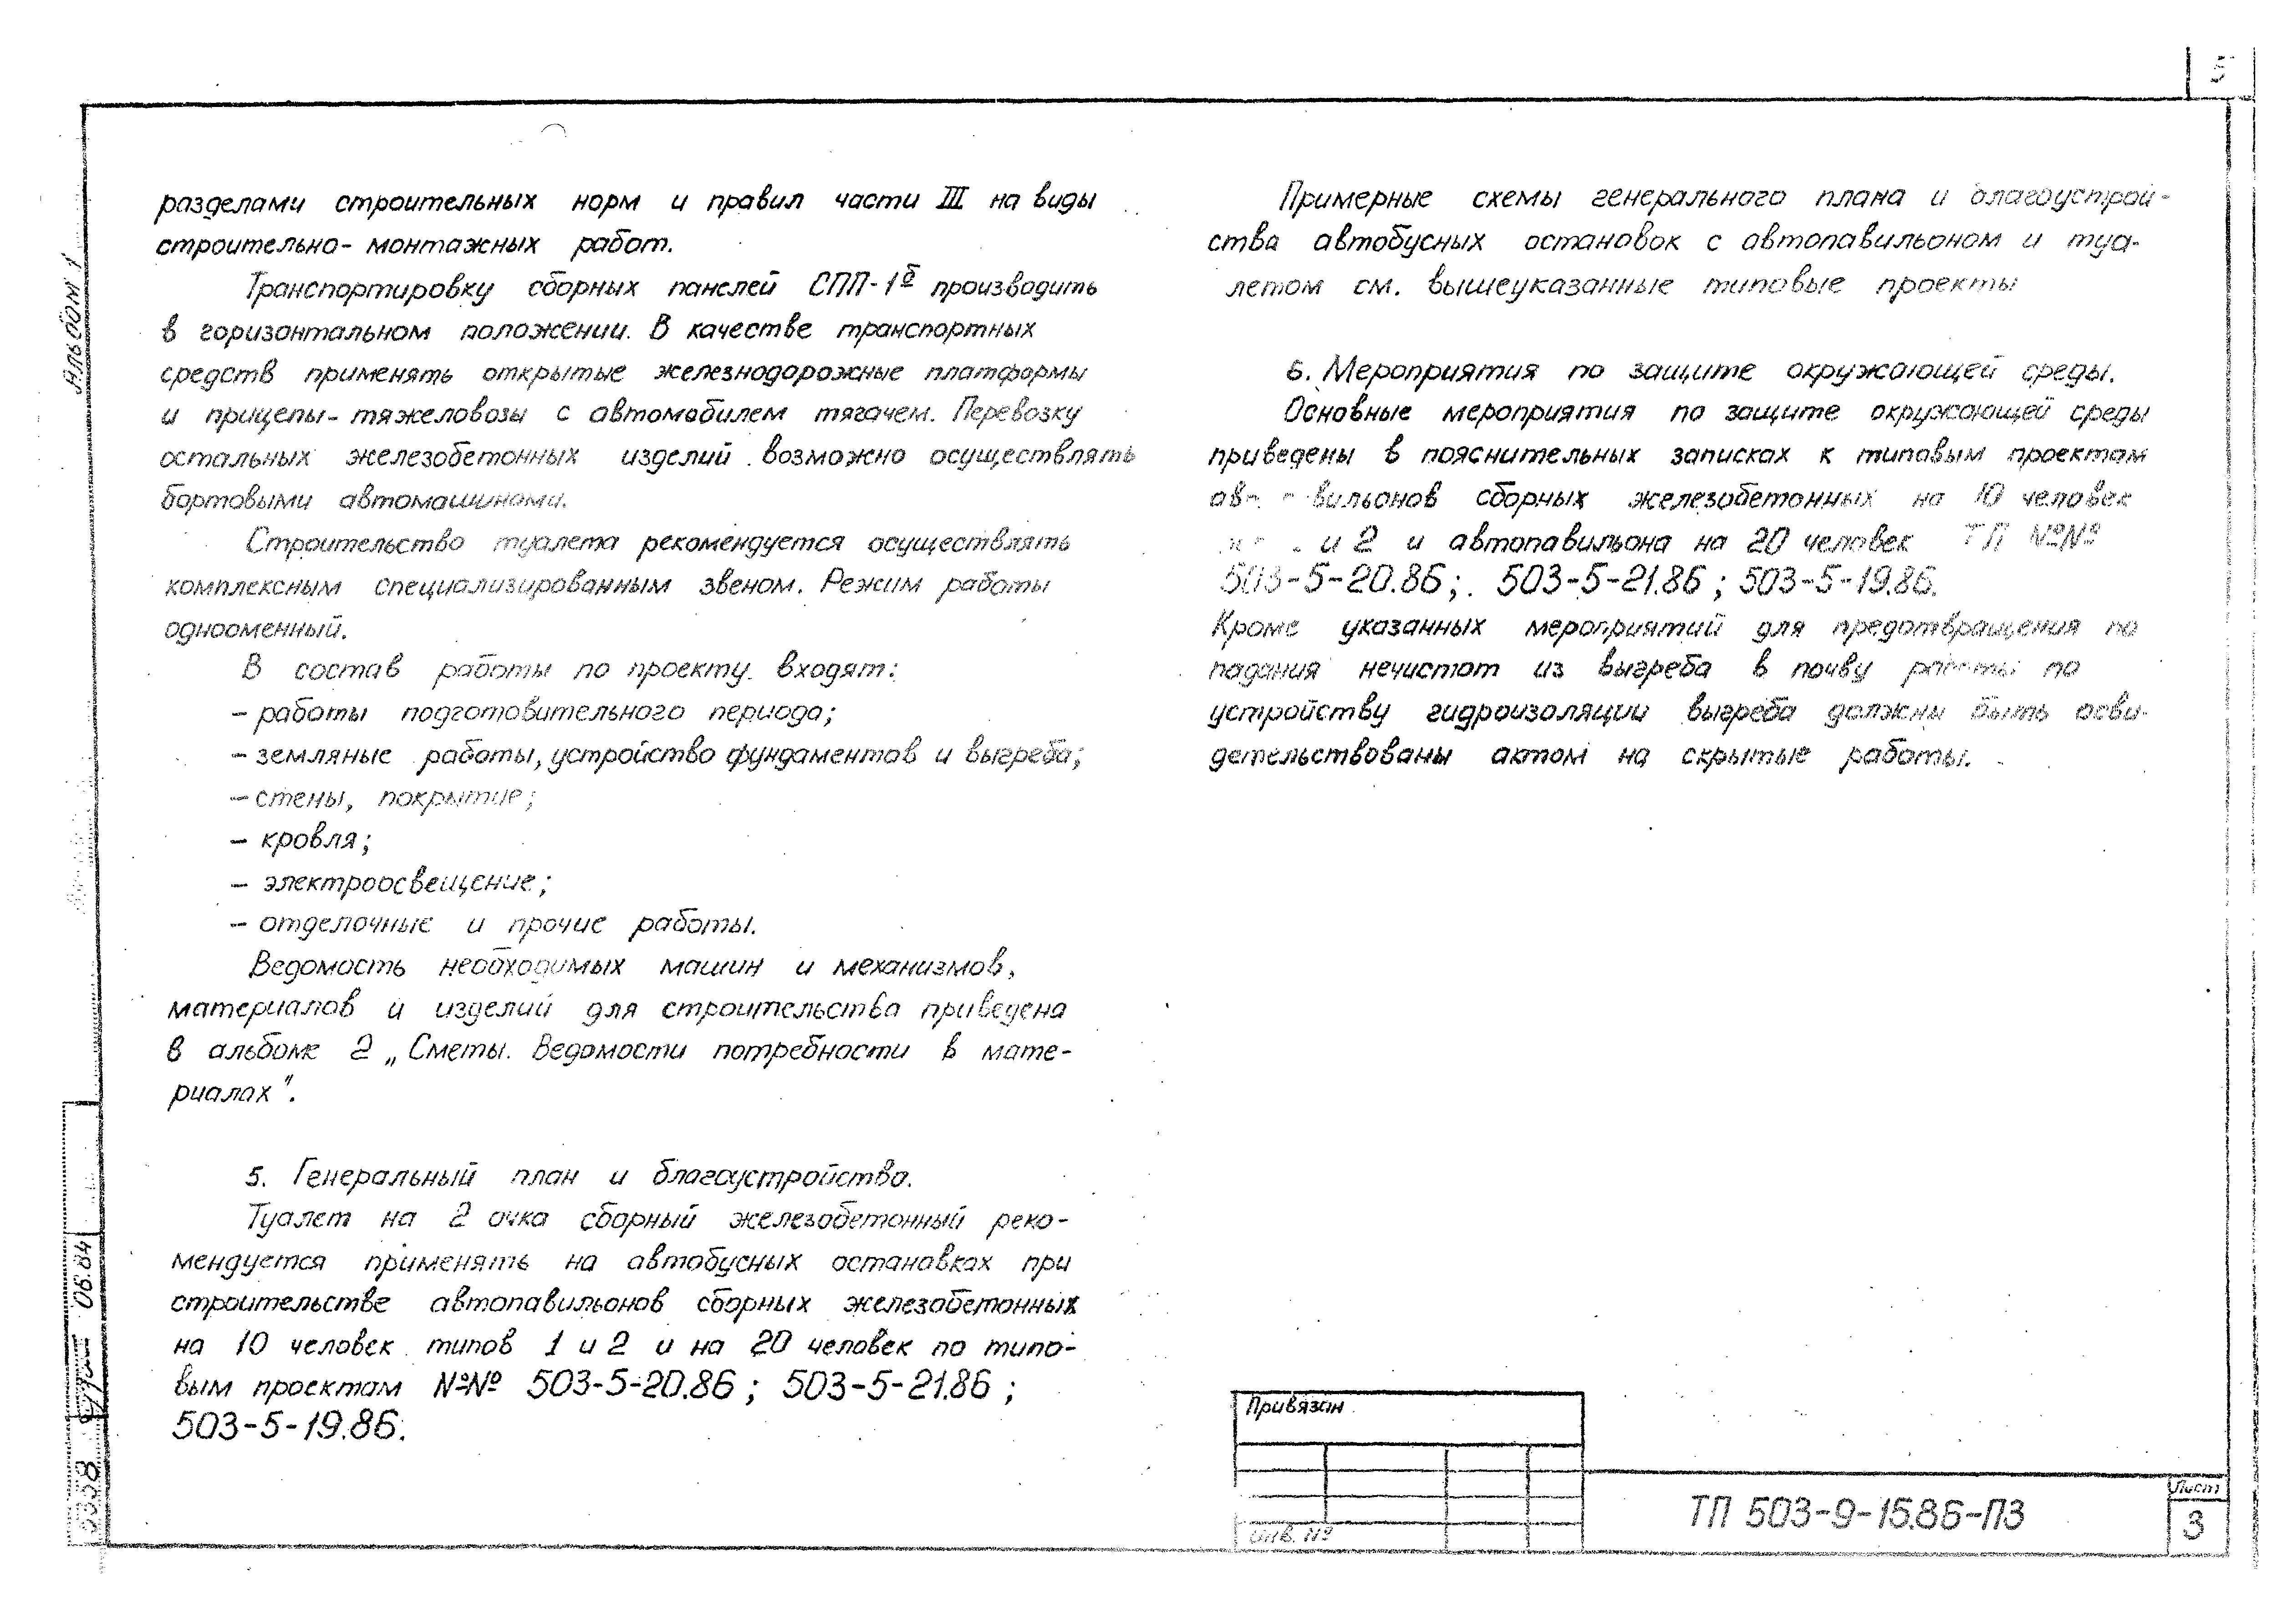 5
Альбом 1
разделами строительных норм и правил части III на виды
строительно-монтажных работ.
Транспортировку сборных панелей СПП-1б производить
в горизонтальном положении. В качестве транспортных
средств применять открытые железнодорожные платформы
и прицепы-тяжеловозы с автомобилем тягачем. Перевозку
остальных железобетонных изделий возможно осуществлять
бортовыми автомашинами.
Строительство туалета рекомендуется осуществлять
комплексным специализированным звеном. Режим работы
однооменный.
В состав работы по проекту входят:
– работы подготовительного периода;
– земляные работы, устройство фундаментов и выгреба;
– стены, покрытие;
– кровля;
– электроосвещение;
– отделочные и прочие работы.
Ведомость необходимых машин и механизмов,
материалов и изделий для строительства приведена
в альбоме 2 „Сметы. Ведомости потребности в мате-
риалах".
5. Генеральный план и благоустройство.
Туалет на 2 очка сборный железобетонный реко-
мендуется применять на автобусных остановках при
строительстве автопавильонов сборных железобетонных
на 10 человек типов 1 и 2 и на 20 человек по типо-
вым проектам №№ 503-5-20.86; 503-5-21.86;
503-5-19.86.
Примерные схемы генерального плана и благоустрой-
ства автобусных остановок с автопавильоном и туа-
летом см. вышеуказанные типовые проекты
6. Мероприятия по защите окружающей среды.
Основные мероприятия по защите окружающей среды
приведены в пояснительных записках к типовым проектам
сборных железобетонных на 10 человек
и 2 и автопавильона на 20 человек ТП №№
503-5-20.86; 503-5-21.86; 503-5-19.86.
Кроме указанных мероприятий для предотвращения по
падания нечистот из выгреба в почву работы по
устройству гидроизоляции выгреба должны быть осви-
детельствованы актом на скрытые работы.
Привязан
Инв. №
ТП 503-9-15.86-ПЗ
Лист
3
06.84